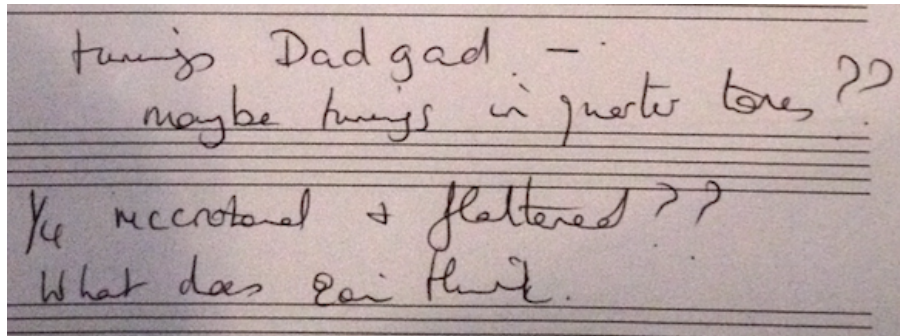 tunings Dadgad –
maybe tunings in quarter tones ??
1/4 microtonal + flattened ??
What does Eoin think.